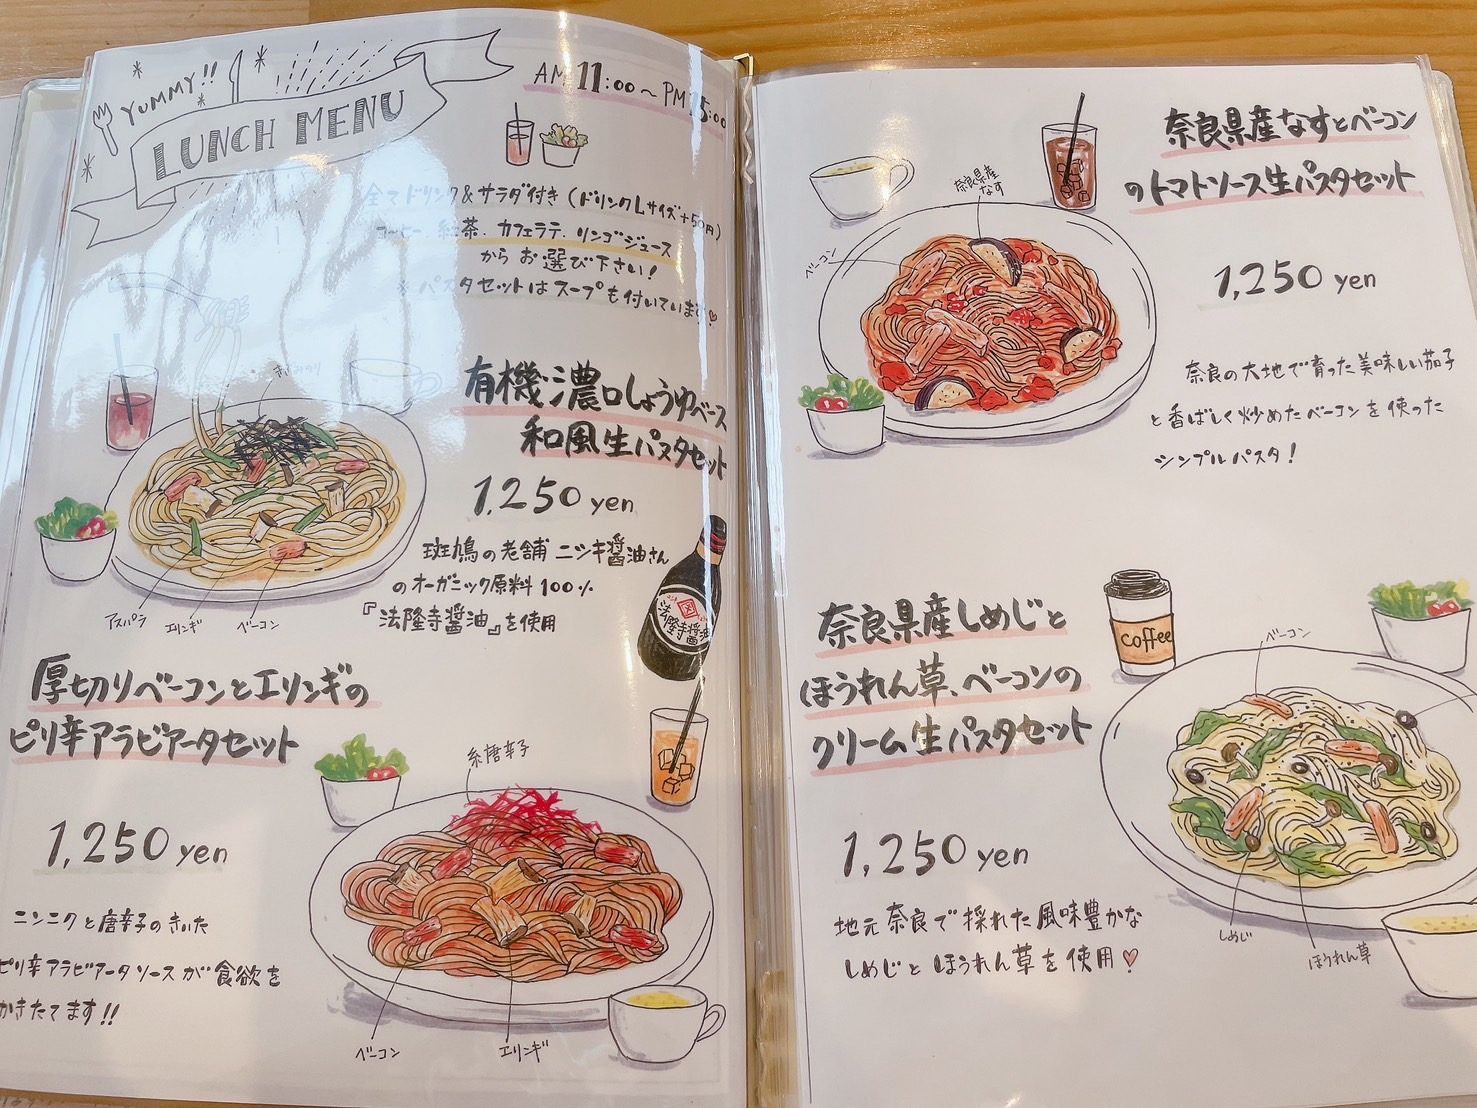 YUMMY!!
LUNCH MENU
AM 11:00～PM 15:00
全てドリンク&サラダ付き（ドリンクLサイズ+50円）
コーヒー、紅茶、カフェラテ、リンゴジュース
からお選び下さい！
※パスタセットはスープも付いています♡
有機濃口しょうゆベース
和風生パスタセット
1,250 yen
斑鳩の老舗 ニシキ醤油さん
のオーガニック原料100%
『法隆寺醤油』を使用
きざみのり
アスパラ
エリンギ
ベーコン
法隆寺醤油
厚切りベーコンとエリンギの
ピリ辛アラビアータセット
1,250 yen
ニンニクと唐辛子のきいた
ピリ辛アラビアータソースが食欲を
かきたてます!!
糸唐辛子
ベーコン
エリンギ
奈良県産なすとベーコン
のトマトソース生パスタセット
1,250 yen
奈良の大地で育った美味しい茄子
と香ばしく炒めたベーコンを使った
シンプルパスタ！
奈良県産
なす
ベーコン
奈良県産しめじと
ほうれん草、ベーコンの
クリーム生パスタセット
1,250 yen
地元奈良で採れた風味豊かな
しめじとほうれん草を使用♡
coffee
ベーコン
しめじ
ほうれん草